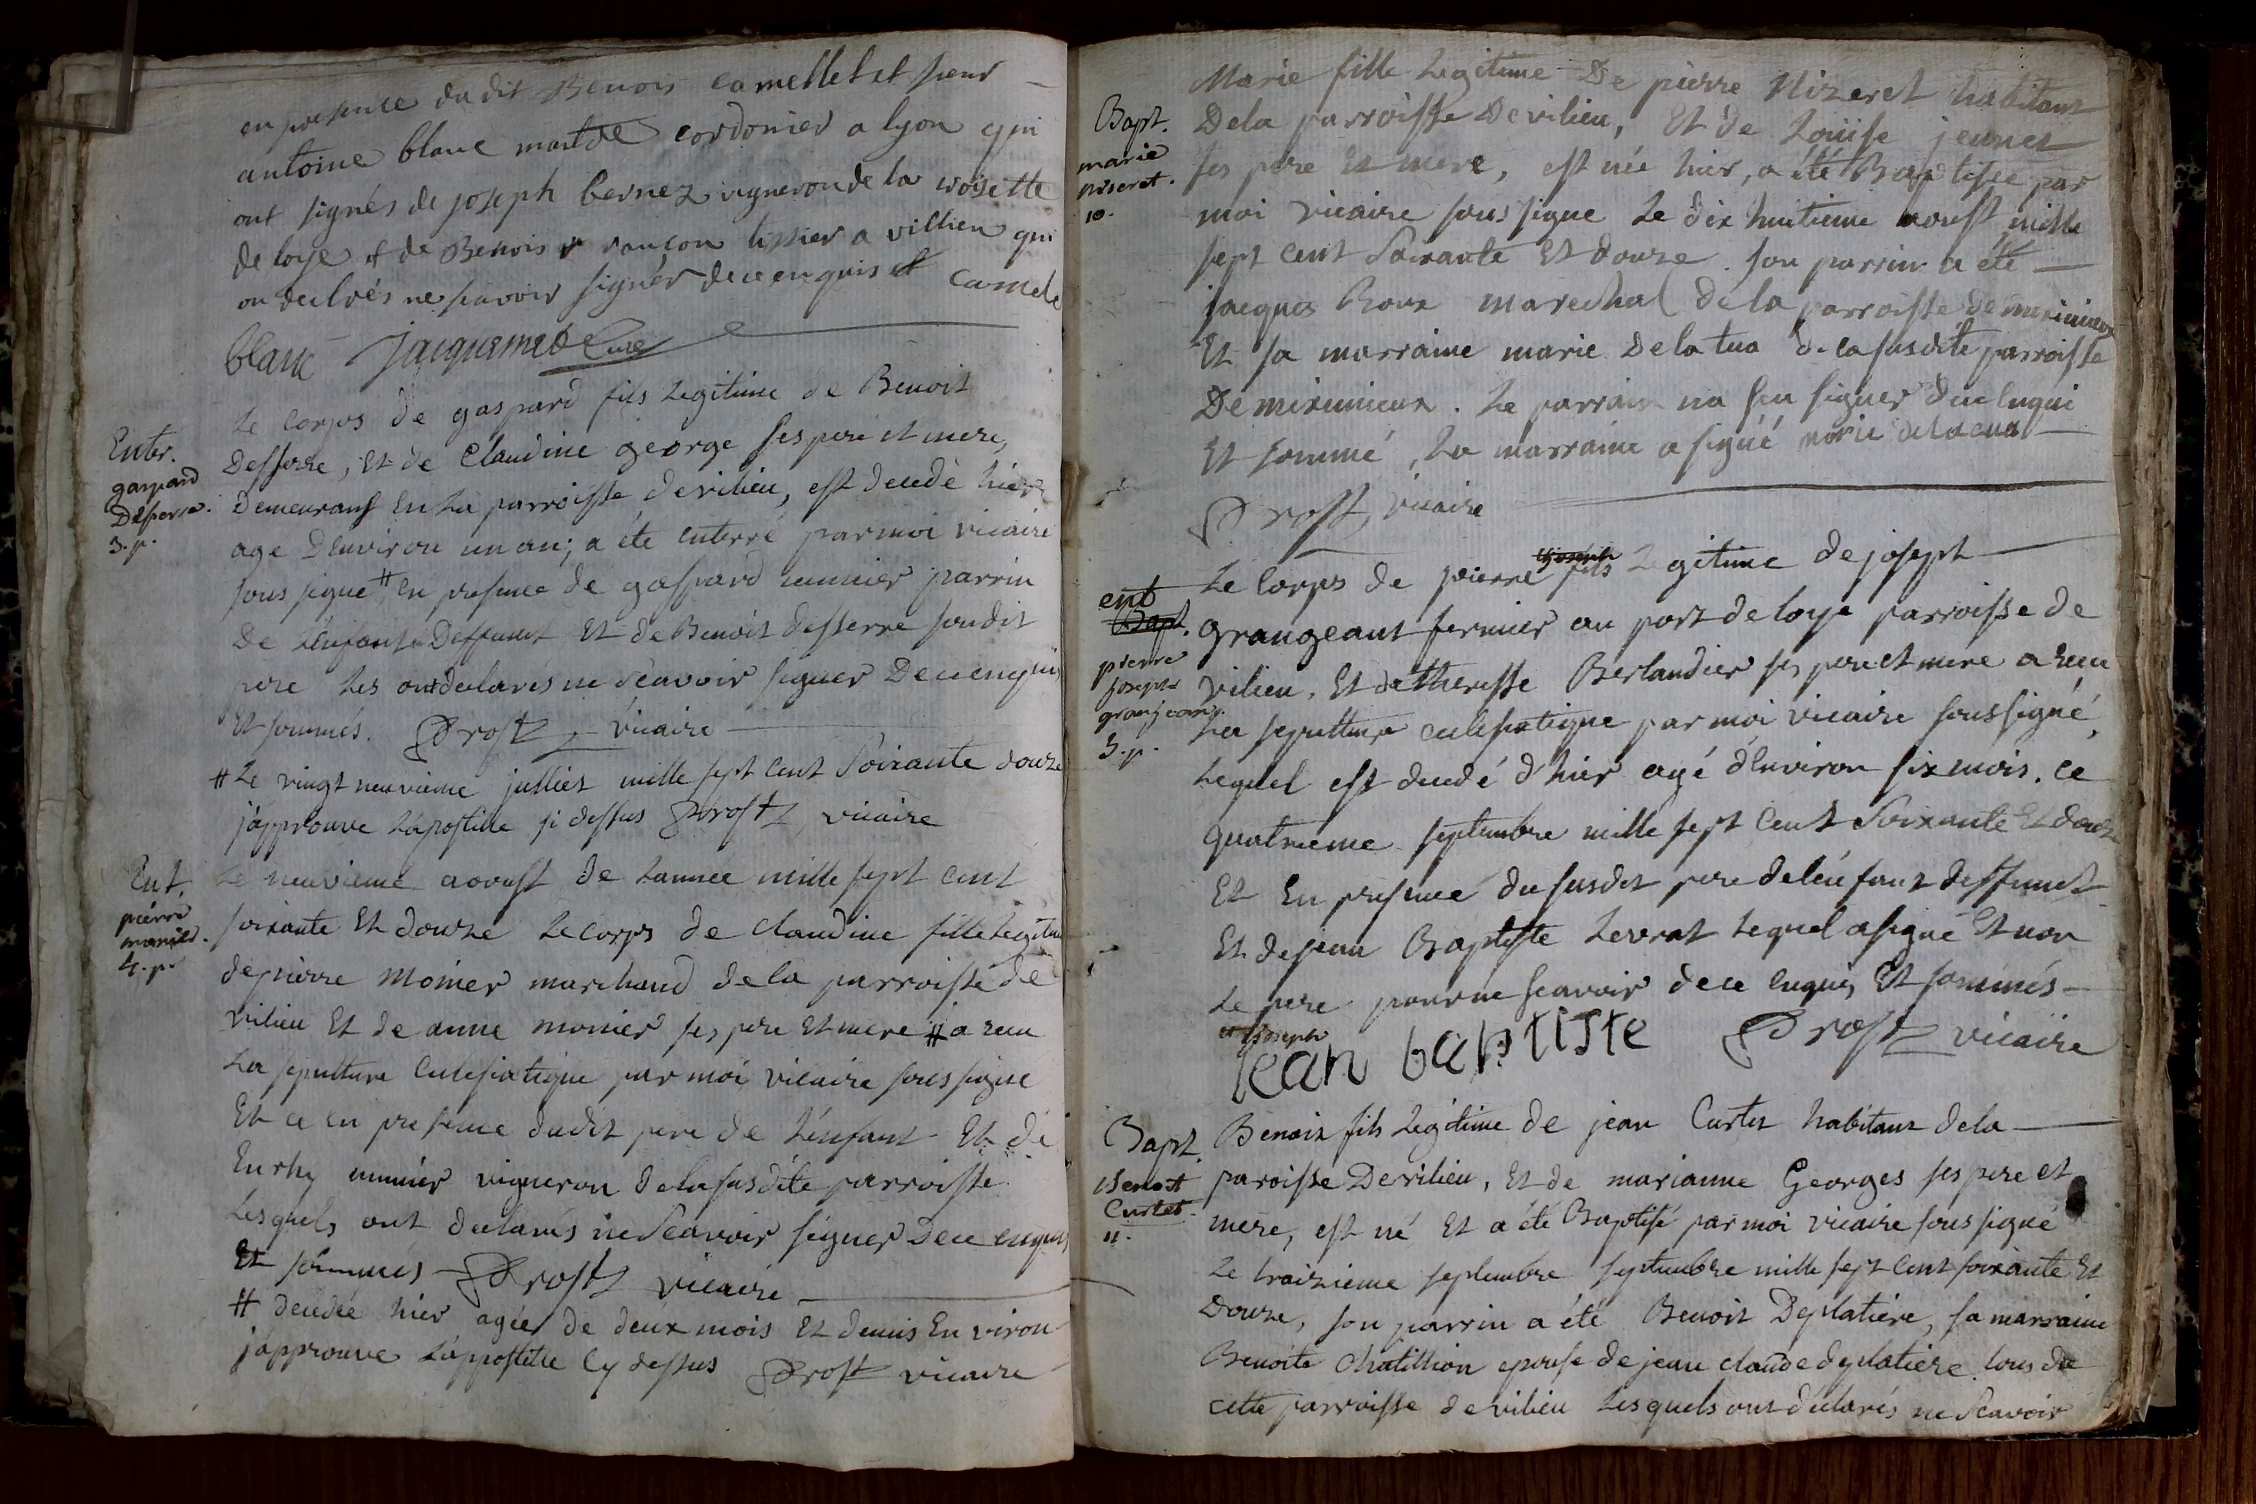 en presence du dit Benois camellet et sieur
antoine blanc cordonier a lyon qui
ont signés de joseph bernez vigneron de la croisette
de loye et de Benois rançon a villieu qui
on declrés ne savoir signer de ce enquis camele
blanc Jacquemet Curé
Le corps de gaspard fils Legitime de Benoit
Desserre, Et de Claudine george ses pere et mere,
Enter.
gaspard
Desserre.
3. p.
Demeurant En La parroisse de vilieu, est decedé hier
age D'environ un an; a été enterré par moi vicaire
sous signe # En presence de gaspard parrin
De L'enfant Deffunct Et de Benoit desserre son dit
pere Les declarés ne Scavoir signer De ce enquis
Et sommés. Prost vicaire
# Le vingt neuvieme julliet mille sept cent Soixante douze
j'approuve L'apostille si dessus Prost vicaire
Ent.
pierre
monier.
4. p.
Le neuvieme aoust de L'annee mille sept cent
soixante Et douze Le corps de claudine fille Legitime
de pierre Monier marchand de la parroisse de
vilieu Et de anne monier ses pere Et mere # a recu
La sepulture Eclesiatique par moi vicaire sous signe
Et ce en presence dudit pere de L'enfant Et de
vigneron de la susdite parroisse
Lesquels ont declarés ne Scavoir signer De ce enquis
Et sommes Prost vicaire
# decedée hier agée de deux mois Et demis Environ
j'approuve L'appostille Cy dessus Prost vicaire
Marie fille Legitime De pierre Mizeret habitant
Bapt.
marie
miseret.
10.
De la parroisse De vilieu, Et de Louise jeunet
ses pere Et mere, est née hier, a été Baptisée par
moi vicaire sous signe Le dix huitieme aoust mille
sept cent Soixante Et douze. son parrin a été
jacques Roux marechal de la parroisse de meximieux
Et sa marraine marie De la tua de la susdite parroisse
De meximieux. Le parrain na sçu signer
Et sommé, La marraine a signé marie delacua
Prost, vicaire
Le corps de pierre fils Legitime de joseph
ent
Bapt.
pierre
joseph
granjean.
3. p.
grangeant fermier au port de loye parroisse de
vilieu, Et de theresse Berlandier ses pere et mere a recu
La sepulture eclesiatique par moi vicaire soussigné,
Lequel est decedé d'hier agé d'Environ six mois. ce
quatrieme septembre mille sept cent Soixante Et douze
Et En presence du susdit pere de l'enfant deffunct
Et de jean Baptiste Levrat Lequel a signé Et non
Le pere pour ne scavoir de ce enquis Et sommés
et joseph
jean baptiste Prost vicaire
Bapt.
Benoit
Curtet.
11.
Benoit fils Legitime de jean Curtet habitant de la
paroisse De vilieu, Et de marianne Georges ses pere et
mere, est né Et a été Baptisé par moi vicaire sous signé
Le traizieme septembre septembre mille sept cent soixante Et
Douze, son parrin a été Benoit Deplatiere, sa marraine
Benoite chatillion epouse de jean claude deplatiere tous de
cette parroisse de vilieu Lesquels ont déclarés ne Scavoir